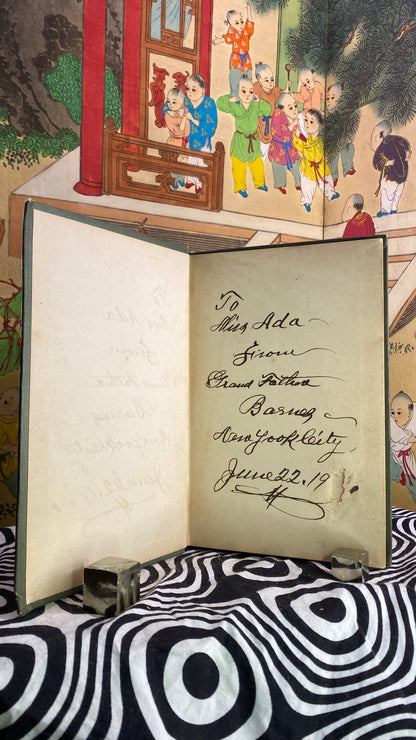 To
Miss Ada
From
Grand Father
Barnes
New York City
June 22. 19